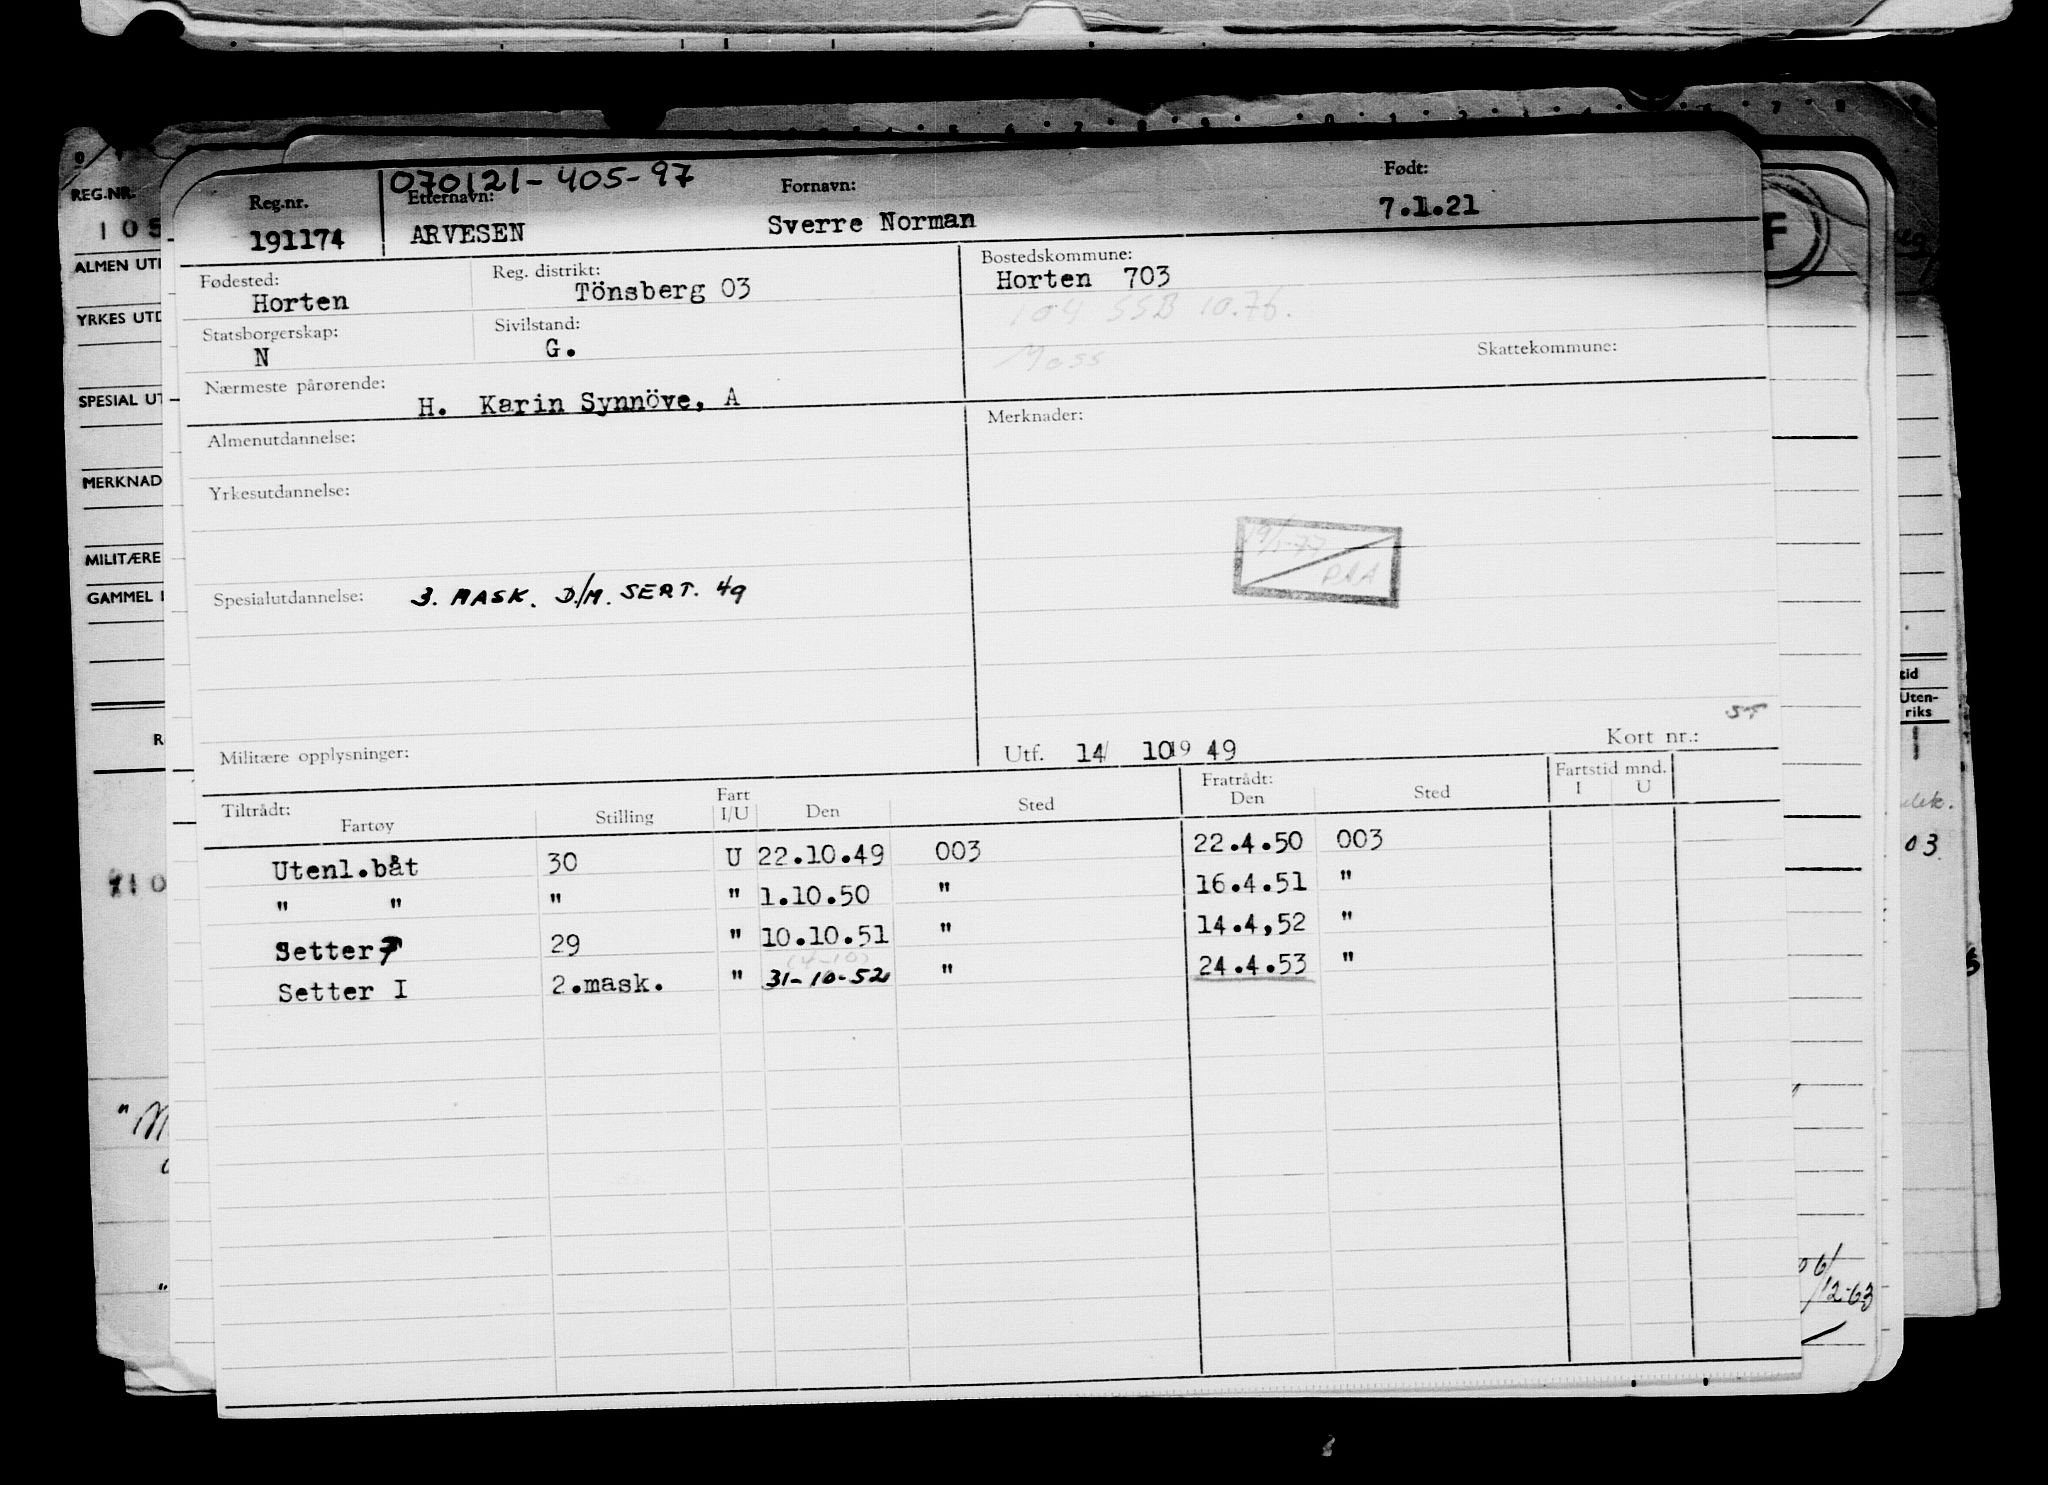 070121-405-97
Reg.nr. Etternavn: Fornavn: Født:
191174 ARVESEN Sverre Norman 7.1.21
Fødested: Reg. distrikt: Bostedskommune:
Horten Tönsberg 03 Horten 703
104 SSB 10.76.
Statsborgerskap: Sivilstand:
N G. Moss Skattekommune:
Nærmeste pårørende:
H. Karin Synnöve, A
Almenutdannelse: Merknader:
Yrkesutdannelse:
19/1-77
Spesialutdannelse: 3. MASK. D/M. SERT. 49
ST
Militære opplysninger: Utf. 14/ 10 19 49 Kort nr.:
Tiltrådt: Fratrådt: Fartstid mnd.
Fartøy Stilling Fart I/U Den Sted Den Sted I U
Utenl.båt 30 U 22.10.49 003 22.4.50 003
" " " " 1.10.50 " 16.4.51 "
Setter 29 " 10.10.51 " 14.4,52 "
(4-10)
Setter I 2.mask. " 31-10-52 " 24.4.53 "
REG.NR.
105
ALMEN UT
YRKES UTD
SPESIAL UT
MERKNAD
MILITÆRE
GAMMEL
R
710
tid
Uten-
riks
03
06/
12-63